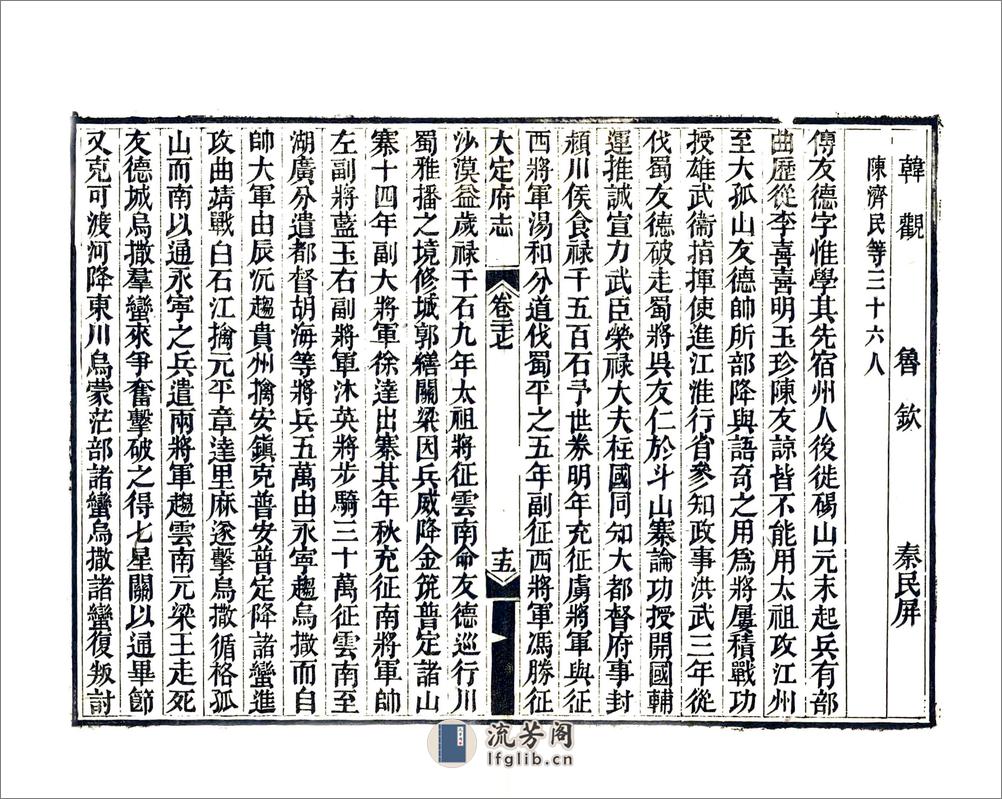 韓觀　魯欽　秦民屏
陳濟民等三十六人
傅友德字惟學其先宿州人後徙碭山元末起兵有部
曲歷從李喜喜明玉珍陳友諒皆不能用太祖攻江州
至大孤山友德帥所部降與語奇之用爲將屢積戰功
授雄武衛指揮使進江淮行省參知政事洪武三年從
伐蜀友德破走蜀將吳友仁於斗山寨論功授開國輔
運推誠宣力武臣榮祿大夫柱國同知大都督府事封
潁川侯食祿千五百石予世券明年充征虜將軍與征
西將軍湯和分道伐蜀平之五年副征西將軍馮勝征
大定府志
卷三十七
十五
沙漠益歲祿千石九年太祖將征雲南命友德巡行川
蜀雅播之境修城郭繕關梁因兵威降金筑普定諸山
寨十四年副大將軍徐達出塞其年秋充征南將軍帥
左副將藍玉右副將軍沐英將步騎三十萬征雲南至
湖廣分遣都督胡海等將兵五萬由永寧趨烏撒而自
帥大軍由辰沅趨貴州擒安鎮克普安普定降諸蠻進
攻曲靖戰白石江擒元平章達里麻遂擊烏撒循格孤
山而南以通永寧之兵遣兩將軍趨雲南元梁王走死
友德城烏撒羣蠻來爭奮擊破之得七星關以通畢節
又克可渡河降東川烏蒙茫部諸蠻烏撒諸蠻復叛討
流芳阁
lfglib.cn